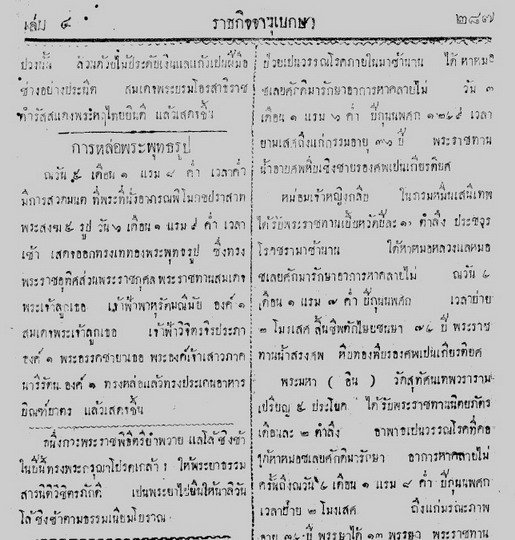 เล่ม ๔
ราชกิจจานุเบกษา
๒๘๗
ปวงนั้น ล้วนด้วยใบประดับเงินแลแก้วเปนฝีมือ
ช่างอย่างประนิต สมเดจพระบรมโอรสาธิราช
ดำรัสแสดงพระหฤไทยยินดี แล้วเสดจขึ้น
การหล่อพระพุทธรูป
ณวัน เดือน ๑ แรม ๘ ค่ำ เวลาค่ำ
มีการสวดมนต ที่พระที่นั่งอาภรณพิโมกขปราสาท
พระสงฆ ๕ รูป วัน เดือน ๑ แรม ๙ ค่ำ เวลา
เช้า เสดจออกทรงเททองพระพุทธรูป ซึ่งทรง
พระราชอุทิศส่วนพระราชกุศล พระราชทานสมเดจ
พระเจ้าลูกเธอ เจ้าฟ้าพาหุรัดมณีมัย องค์ ๑
สมเดจพระเจ้าลูกเธอ เจ้าฟ้าวิจิตรจิรประภา
องค์ ๑ พระอรรคชายาเธอ พระองค์เจ้าเสาวภาค
นารีรัตน องค์ ๑ ทรงหล่อแล้วทรงประเคนอาหาร
บิณฑ์บาตร แล้วเสดจขึ้น
หนึ่งการพระราชพิธีตรียำพวาย แลโล้ชิงช้า
ในปีนี้ทรงพระกรุณาโปรดเกล้าฯ ให้พระยาธรรม
สารนิติวิชิตรภักดี เปนพระยาไปยืนให้นาลิวัน
โล้ชิงช้าตามธรรมเนียมโบราณ
ป่วยเปนวรรณโรคภายในมาช้านาน ได้หาหมอ
ชเลยศักดิมารักษาอาการหาคลายไม่ วัน ๓
เดือน ๑ แรม ๖ ค่ำ ปีกุนนพศก ๑๒๔๙ เวลา
ยามเสศถึงแก่กรรมอายุ ปี พระราชทาน
น้ำอาบศพหีบเชิงชายรองศพเปนเกียรติยศ
หม่อมเจ้าหญิงกลีบ ในกรมหมื่นเสนีเทพ
ได้รับพระราชทานเบี้ยหวัดปีละ ๑๐ ตำลึง ประชวร
โรคชรามาช้านาน ได้หาหมอหลวงแลหมอ
ชเลยศักดิมารักษาอาการหาคลายไม่ ณวัน ๔
เดือน ๑ แรม ๗ ค่ำ ปีกุนนพศก เวลาบ่าย
๒ โมงเสศ สิ้นชีพตักไษยชนมา ปี พระราช
ทานน้ำสรงศพ หีบทองทึบรองศพเปนเกียรติยศ
พระมหา ( อิน ) วัดสุทัศนเทพวราราม
เปรียญ ๕ ประโยค ได้รับพระราชทานนิตยภัตร
เดือนละ ๒ ตำลึง อาพาธเปนวรรณโรคที่คอ
ได้หาหมอชเลยศักดิมารักษา อาการหาคลายไม่
ครั้นถึงณวัน เดือน ๑ แรม ๘ ค่ำ ปีกุนนพศก
เวลาบ่าย ๒ โมงเสศ ถึงแก่มรณะภาพ
อายุ ปี พรรษาได้ ๑๓ พรรษา พระราชทาน